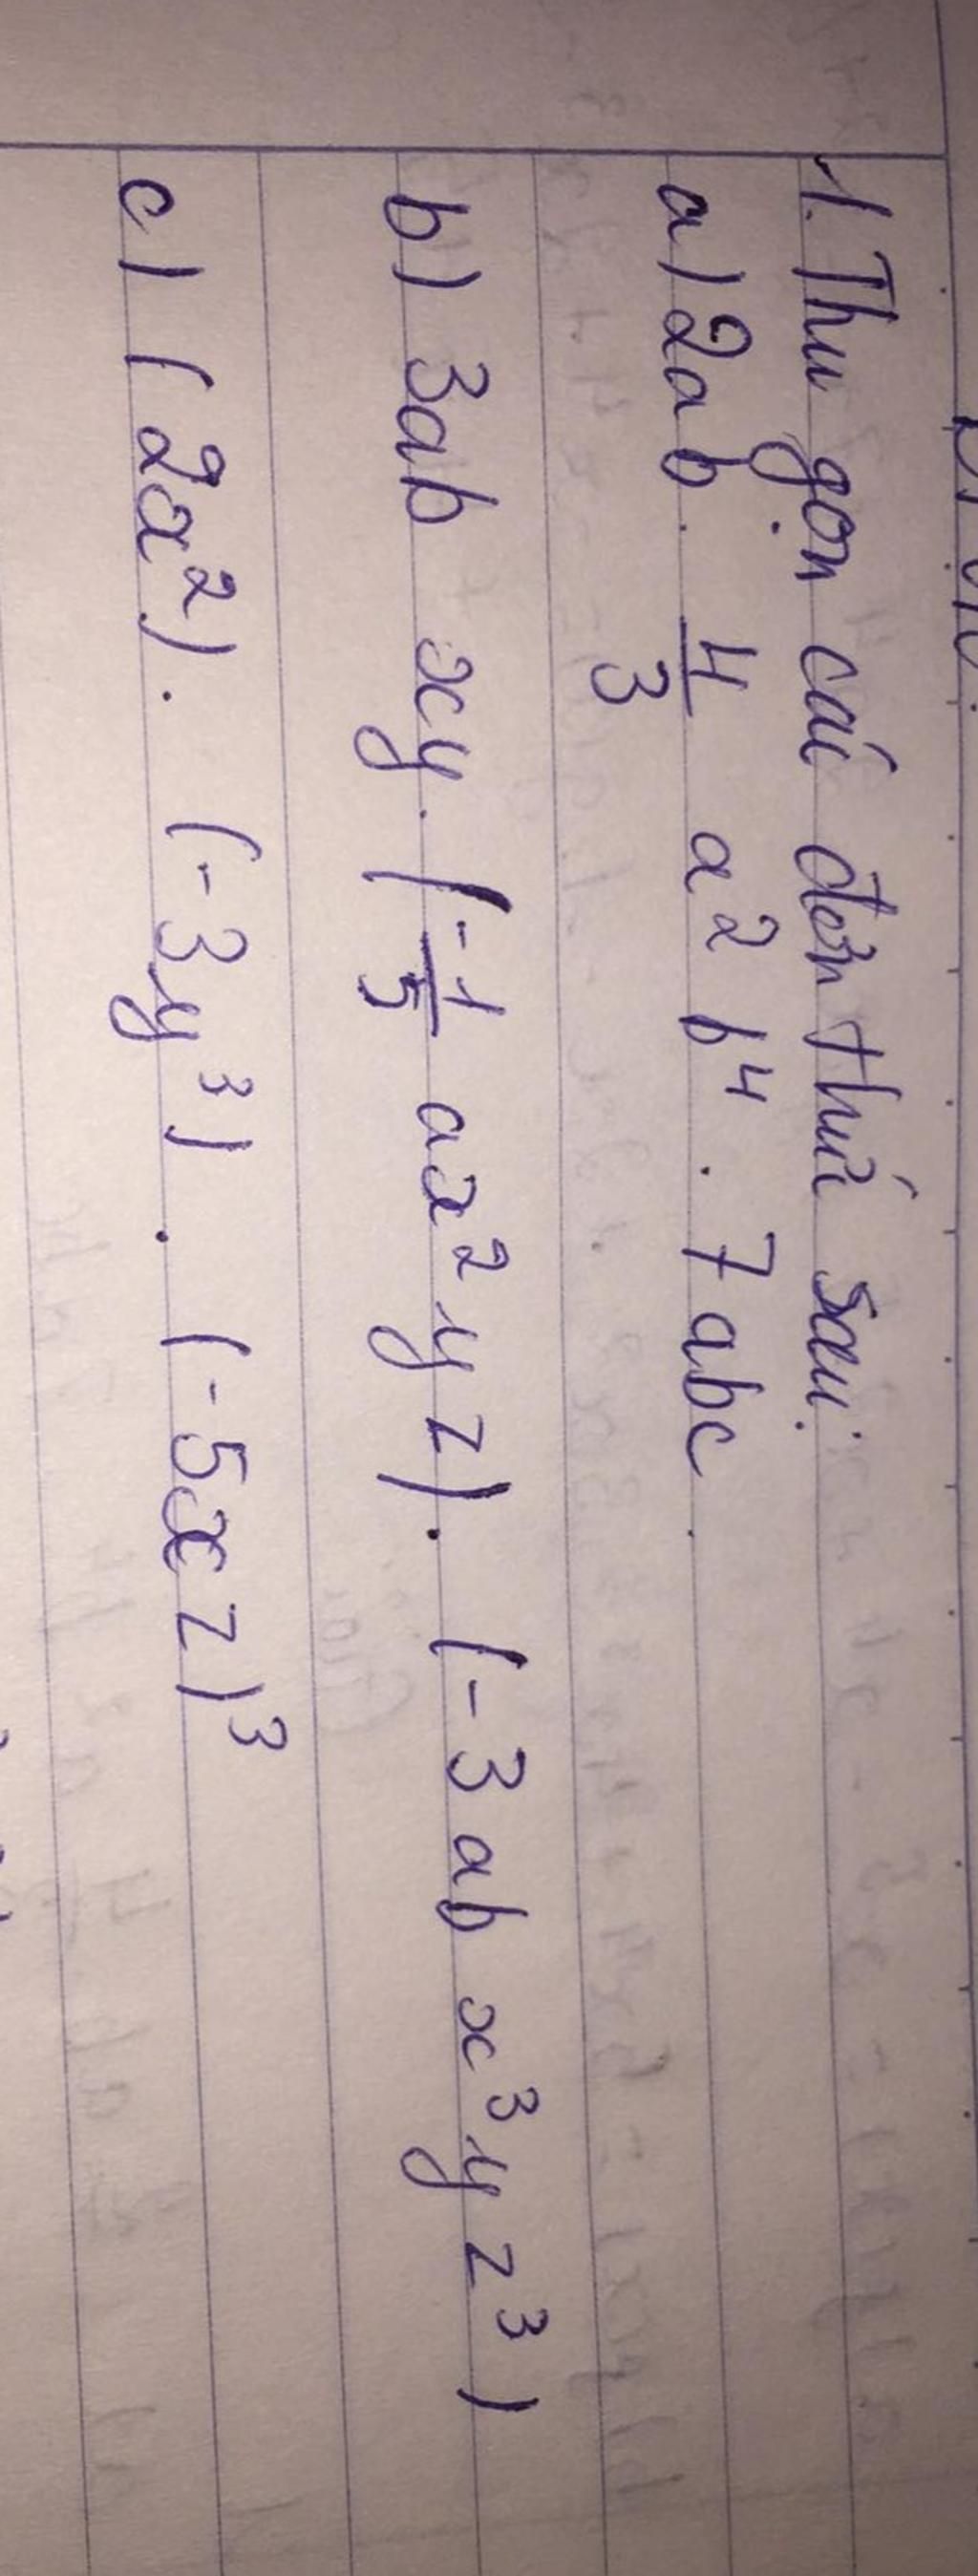 1. Thu gọn các đơn thức sau:
a) 2ab . \frac{4}{3} a² b⁴ . 7abc .
b) 3ab xy . (\frac{-1}{5} ax² y z) . (-3 ab x³ y z³)
c) (2x²) . (-3y³) . (-5xz)³